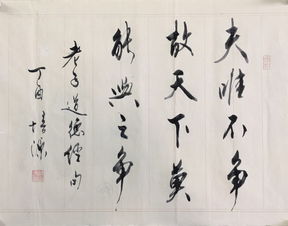 夫唯不争
故天下莫
能与之争
老子道德经句
丁酉培源